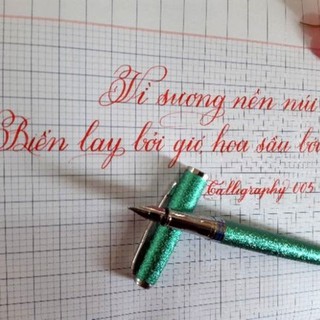 Vì sương nên núi
Biển lay bởi gió hoa sầu bởi
Calligraphy 005